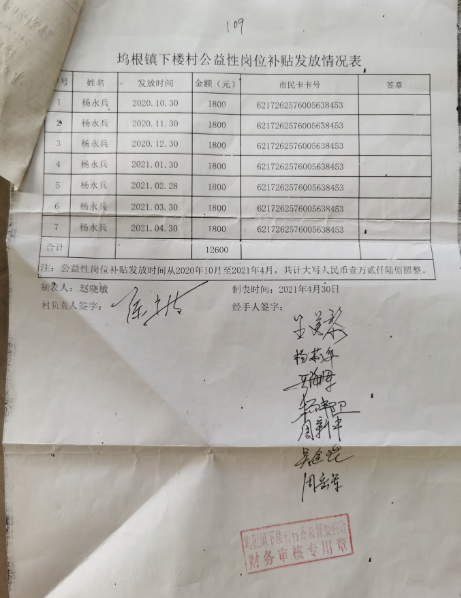 109
坞根镇下楼村公益性岗位补贴发放情况表
号 姓名 发放时间 金额（元） 市民卡卡号 签章
1 杨永兵 2020.10.30 1800 6217262576005638453
2 杨永兵 2020.11.30 1800 6217262576005638453
3 杨永兵 2020.12.30 1800 6217262576005638453
4 杨永兵 2021.01.30 1800 6217262576005638453
5 杨永兵 2021.02.28 1800 6217262576005638453
6 杨永兵 2021.03.30 1800 6217262576005638453
7 杨永兵 2021.04.30 1800 6217262576005638453
合计 12600
注：公益性岗位补贴发放时间从2020年10月至2021年4月，共计大写人民币壹万贰仟陆佰圆整。
制表人：赵晓敏 制表时间：2021年4月30日
村负责人签字： 经手人签字：
周新中
坞根镇下楼村
财务审核专用章